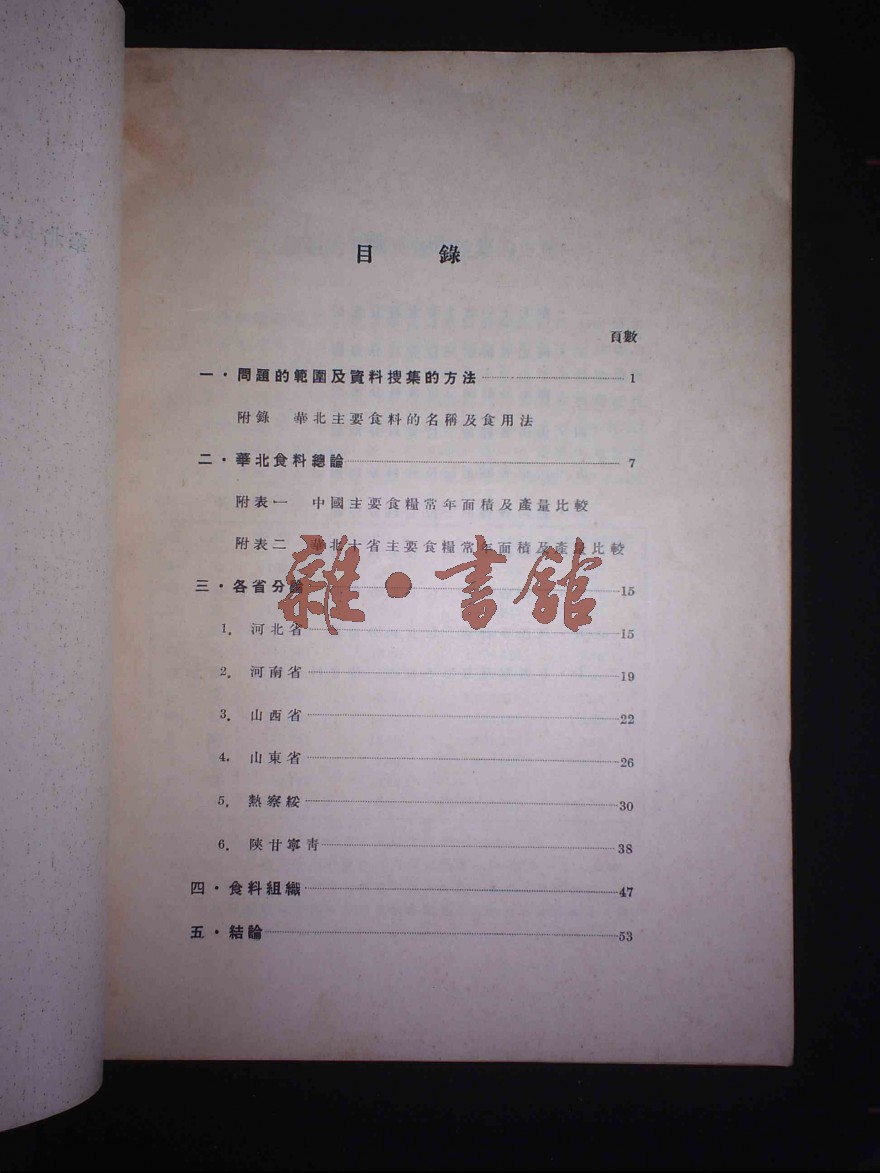 目 錄
頁數
一・問題的範圍及資料搜集的方法 1
附錄 華北主要食料的名稱及食用法
二・華北食料總論 7
附表一 中國主要食糧常年面積及產量比較
附表二 華北十省主要食糧常年面積及產量比較
三・各省分論 15
1. 河北省 15
2. 河南省 19
3. 山西省 22
4. 山東省 26
5. 熱察綏 30
6. 陝甘寧青 38
四・食料組織 47
五・結論 53
雜・書館